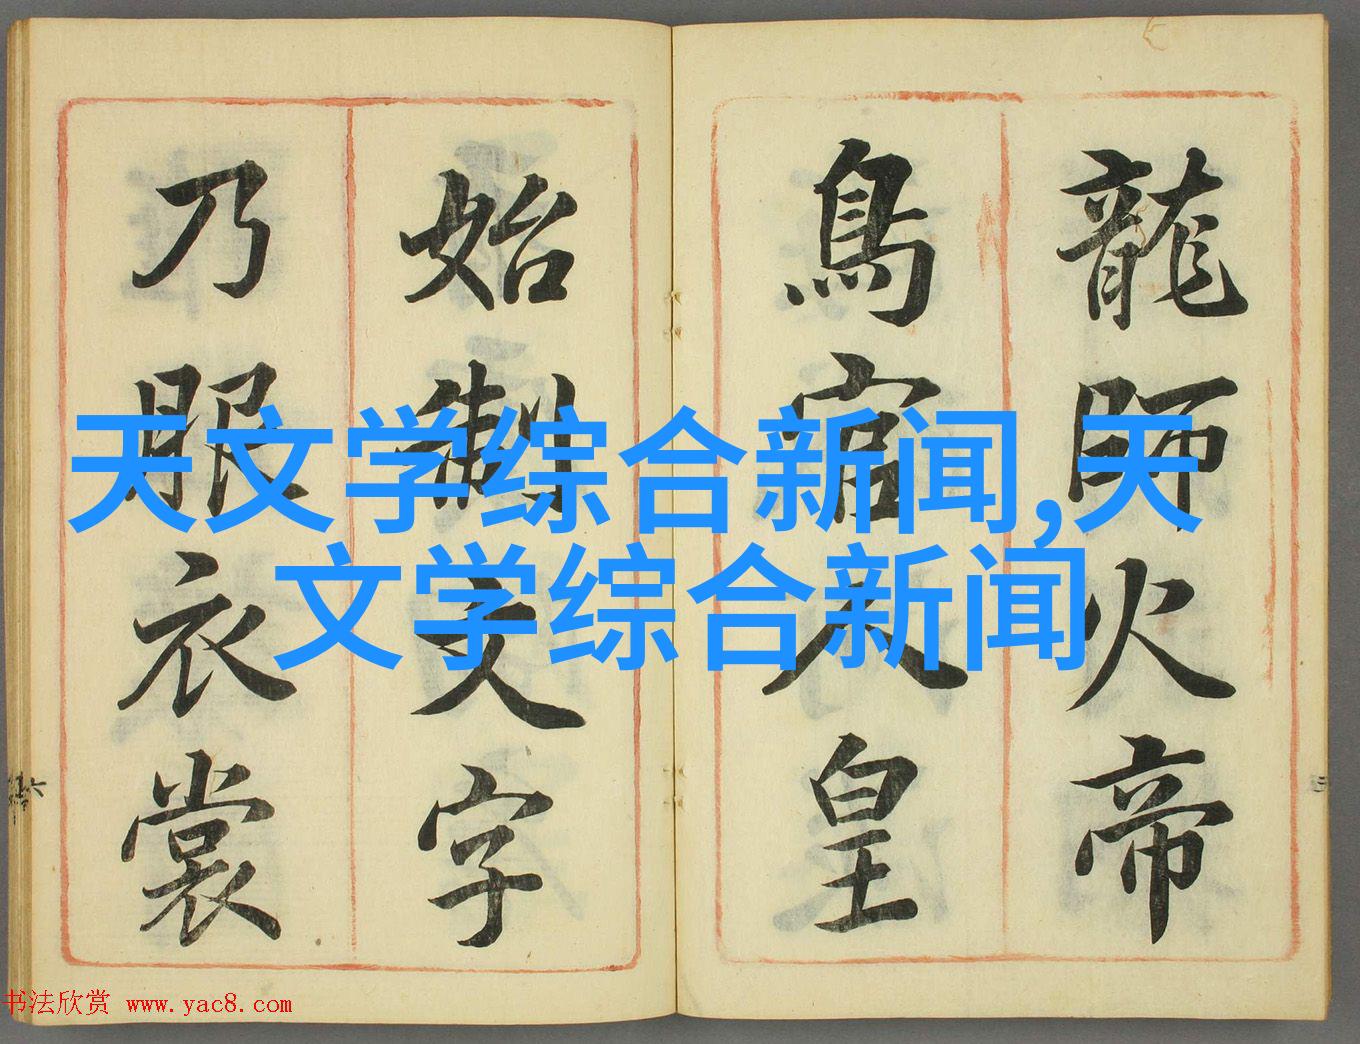 龍師火帝
鳥官人皇
始制文字
乃服衣裳
天文学综合新闻,天
文学综合新闻
书法欣赏 www.yac8.com